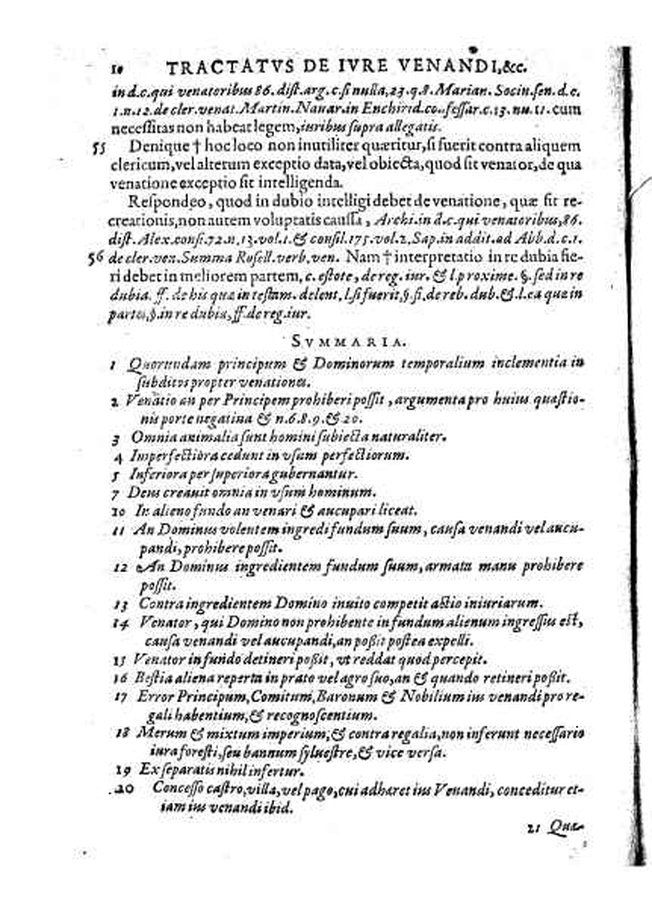 10 TRACTATVS DE IVRE VENANDI,&c.
in d.c.qui venatoribus 86. dist.arg.c.si nulla,23.q.8. Marian. Socin.sen.d.c.
1.n.12.de cler.venat.Martin.Nauar.in Enchirid.confessar.c.13.nu.11. cum
necessitas non habeat legem,iuribus supra allegatis.
55 Denique † hoc loco non inutiliter quæritur,si fuerit contra aliquem
clericum,vel alterum exceptio data,vel obiecta,quod sit venator,de qua
venatione exceptio sit intelligenda.
Respondeo, quod in dubio intelligi debet de venatione, quæ sit re-
creationis,non autem voluptatis caussa, Archi.in d.c.qui venatoribus,86.
dist. Alex.consi.72.n.13.vol.1.& consil.175.vol.2.Sap.in addit.ad Abb.d.c.1.
56 de cler.ven.Summa Rosell.verb.ven. Nam † interpretatio in re dubia fie-
ri debet in meliorem partem, c. estote, de reg. iur. & l.proxime. §. sed in re
dubia. ff. de his quæ in testam. delent, l.si fuerit,§.si.de reb. dub.&.l.ea quæ in
partes,§.in re dubia,ff.de reg.iur.
SVMMARIA.
1 Quorundam principum & Dominorum temporalium inclementia in
subditos propter venationes.
2 Venatio an per Principem prohiberi possit, argumenta pro huius quæstio-
nis porte negatiua & n.6.8.9.&.20.
3 Omnia animalia sunt homini subiecta naturaliter.
4 Imperfectiora cedunt in vsum perfectiorum.
5 Inferiora per superiora gubernantur.
7 Deus creauit omnia in vsum hominum.
10 In alieno fundo an venari & aucupari liceat.
11 An Dominus volentem ingredi fundum suum, causa venandi vel aucu-
pandi, prohibere possit.
12 An Dominus ingredientem fundum suum, armata manu prohibere
possit.
13 Contra ingredientem Domino inuito competit actio iniuriarum.
14 Venator, qui Domino non prohibente in fundum alienum ingressus est,
causa venandi vel aucupandi,an poßit postea expelli.
15 Venator in fundo detineri poßit, vt reddat quod percepit.
16 Bestia aliena reperta in prato vel agro suo,an & quando retineri poßit.
17 Error Principum, Comitum, Baronum & Nobilium ius venandi pro re-
gali habentium,& recognoscentium.
18 Merum & mixtum imperium,& contra regalia,non inferunt necessario
iura foresti, seu bannum syluestre,& vice versa.
19 Ex separatis nihil infertur.
20 Concesso castro, villa, vel pago, cui adhæret ius Venandi, conceditur et-
iam ius venandi ibid.
21 Quæ-